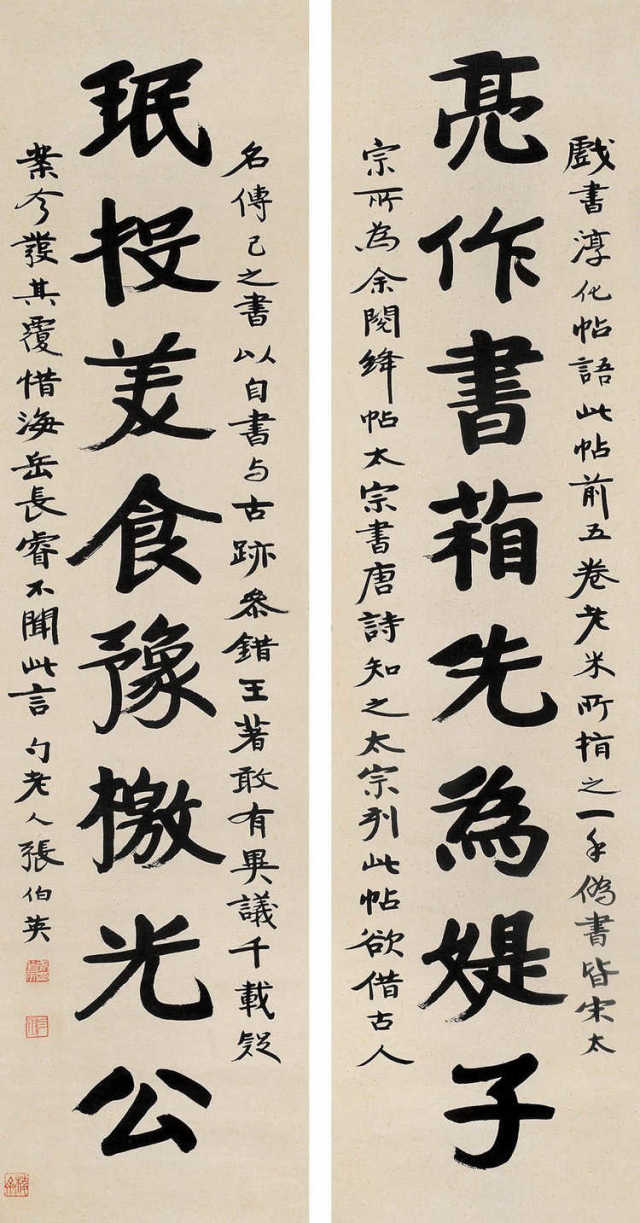 戲書淳化帖語此帖前五卷老米所指之一手偽書皆宋太
亮作書箱先為媞子
宗所為余閱絳帖太宗書唐詩知之太宗列此帖欲借古人
名傳己之書以自書与古跡參錯王著敢有異議千載疑
珉投美食豫檄光公
業今發其覆惜海岳長睿不聞此言 勺老人張伯英